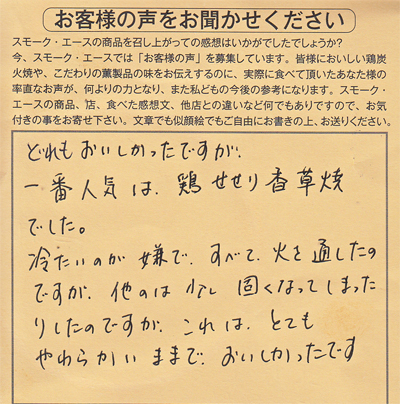 お客様の声をお聞かせください
スモーク・エースの商品を召し上がっての感想はいかがでしたでしょうか?
今、スモーク・エースでは「お客様の声」を募集しています。皆様においしい鶏炭
火焼や、こだわりの薫製品の味をお伝えするのに、実際に食べて頂いたあなた様の
率直なお声が、何よりの力となり、また私どもの今後の参考になります。スモーク・
エースの商品、店、食べた感想文、他店との違いなど何でもありですので、お気
付きの事をお寄せ下さい。文章でも似顔絵でもご自由にお書きの上、お送りください。
どれもおいしかったですが、
一番人気は、鶏せせり香草焼
でした。
冷たいのが嫌で、すべて、火を通したの
ですが、他のは少し固くなってしまった
りしたのですが、これは、とても
やわらかいままで、おいしかったです